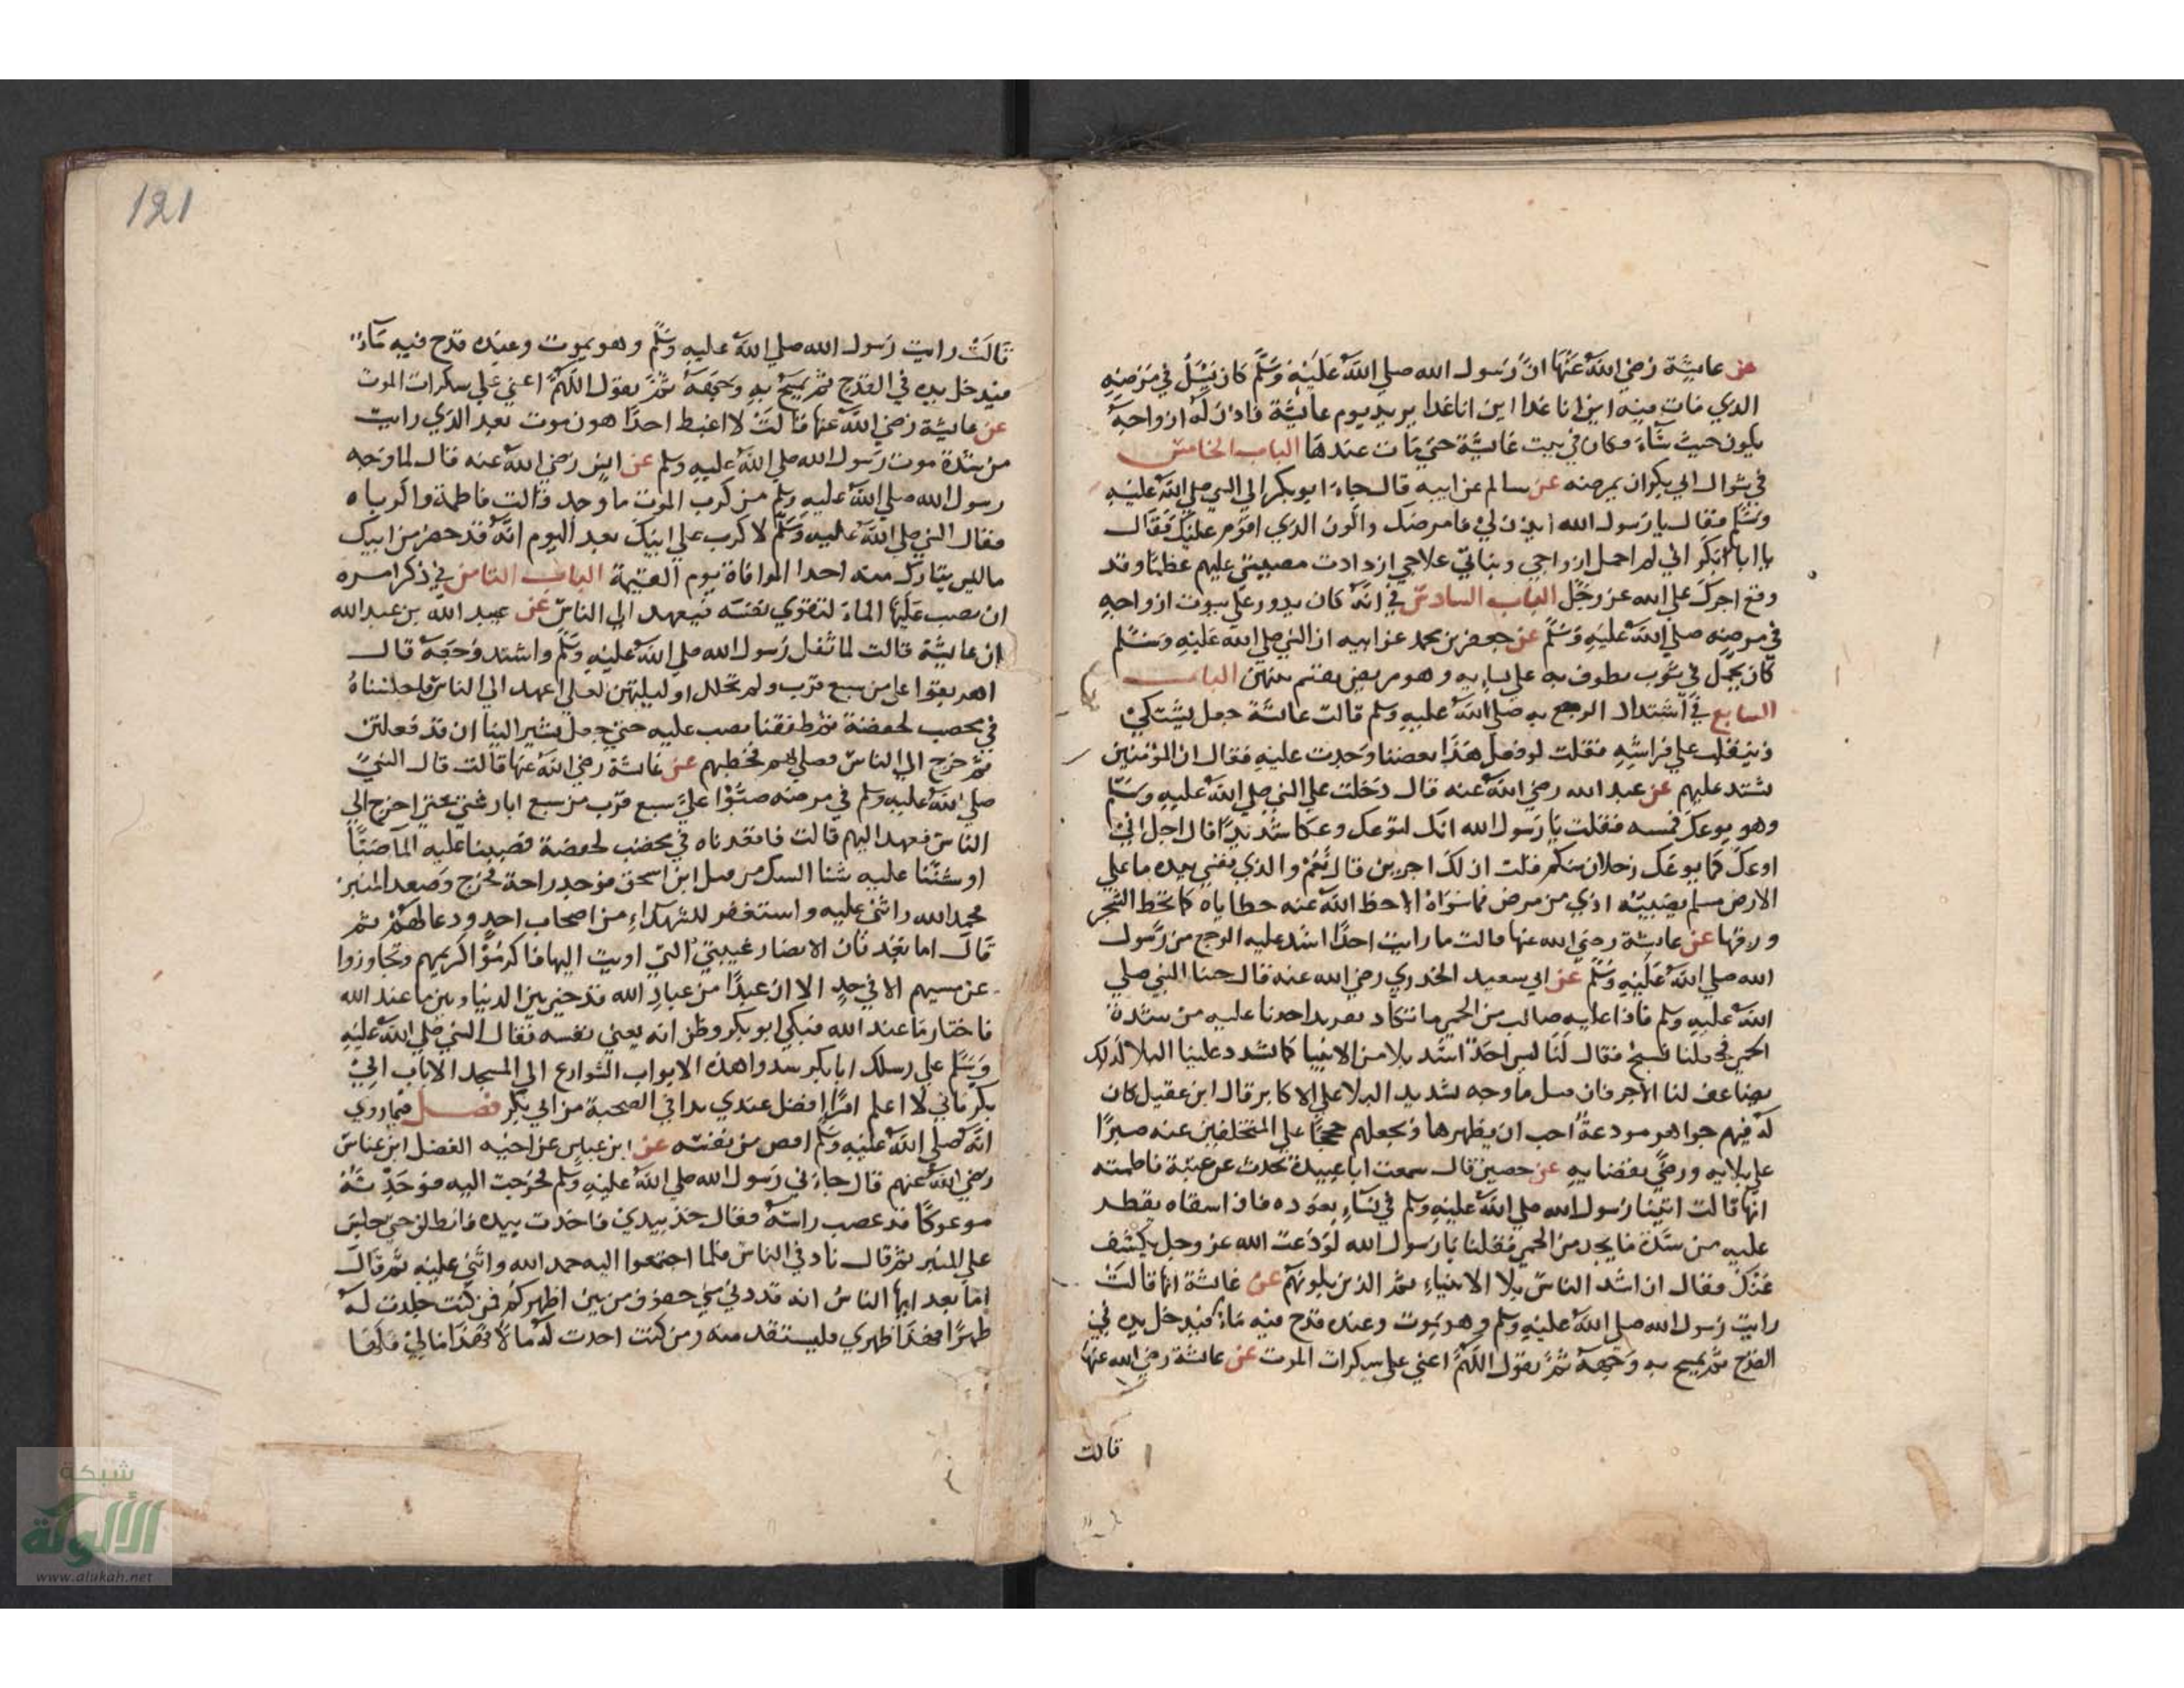 عن عايشة رضي الله عنها ان رسول الله صلي الله عليه وسلم كان يسئل في مرضه
الذي مات فيه اين انا غدا اين انا غدا يريد يوم عايشة فاذن له ازواجه
يكون حيث شاء وكان في بيت عايشة حتي مات عندها الباب الخامس
في سوال ابي بكر ان يمرضه عن سالم عن ابيه قال جاء ابو بكر الي النبي صلي الله عليه
وسلم فقال يا رسول الله ايذن لي فامرضك واكون الذي اقوم عليك فقال
يا ابا بكر اني لم احمل ازواجي وبناتي علاجي ازدادت مصيبتي عليهم عظما وقد
وقع اجرك علي الله عز وجل الباب السادس في انه كان يدور علي بيوت ازواجه
في مرضه صلي الله عليه وسلم عن جعفر بن محمد عن ابيه ان النبي صلي الله عليه وسلم
كان يحمل في ثوب يطوف به علي نسايه وهو مريض يقسم بينهن الباب
السابع في اشتداد الوجع به صلي الله عليه وسلم قالت عائشة جعل يشتكي
ويتقلب علي فراشه فقلت لو فعل هذا بعضنا وجدت عليه فقال ان المؤمنين
شتد عليهم عن عبد الله رضي الله عنه قال دخلت علي النبي صلي الله عليه وسلم
وهو يوعك فمسه فقلت يا رسول الله انك لتوعك وعكا شديدا قال اجل اني
اوعك كما يوعك رجلان منكم قلت ان لك اجرين قال نعم والذي نفسي بيده ما علي
الارض مسلم يصيبه اذي من مرض فما سواه الا حط الله عنه خطاياه كما تحط الشجر
ورقها عن عايشة رضي الله عنها قالت ما رايت احدا اشد عليه الوجع من رسول
الله صلي الله عليه وسلم عن ابي سعيد الخدري رضي الله عنه قال جينا النبي صلي
الله عليه وسلم فاذا عليه صالب من الحمي ما تكاد تقر يد احدنا عليه من شدة
الحمي فجعلنا نسبح فقال لنا ليس احدا اشد بلا من الانبيا كما يشدد علينا البلا كذلك
يضاعف لنا الاجر فان قيل ما وجه شديد البلا علي الاكابر قال ابن عقيل كان
له فيهم جواهر مودعة احب ان يظهرها ويجعلهم حججا علي المتخلفين عنه صبرا
علي بلايه ورضي بقضايه عن حصين قال سمعت ابا عبيدة يحدث عن عمته فاطمته
انها قالت اتينا رسول الله صلي الله عليه وسلم في نساء يعوده فاذا سقاه يقطر
عليه من شدة ما يجد من الحمي فقلنا يا رسول الله لو دعوت الله عز وجل يكشف
عنك فقال ان اشد الناس بلا الانبياء ثم الذين يلونهم عن عايشة انها قالت
رايت رسول الله صلي الله عليه وسلم وهو يموت وعنده قدح فيه ماء فيدخل يده في
القدح ثم يمسح به وجهه ثم يقول اللهم اعني علي سكرات الموت عن عائشة رضي الله عنها
قالت
121
قالت رايت رسول الله صلي الله عليه وسلم وهو يموت وعنده قدح فيه ماء
فيدخل يده في القدح ثم يمسح به وجهه ثم يقول اللهم اعني علي سكرات الموت
عن عايشة رضي الله عنها قالت لا اغبط احدا هون موت بعد الذي رايت
من شدة موت رسول الله صلي الله عليه وسلم عن انس رضي الله عنه قال لما وجد
رسول الله صلي الله عليه وسلم من كرب الموت ما وجد قالت فاطمة واكرباه
فقال النبي صلي الله عليه وسلم لا كرب علي ابيك بعد اليوم انه قد حضر من ابيك
ما ليس بتارك منه احدا الموافاة يوم القيمة الباب الثامن في ذكر امره
ان يصب عليه الماء لتقوي نفسه فيعهد الي الناس عن عبيد الله بن عبد الله
ان عايشة قالت لما ثقل رسول الله صلي الله عليه وسلم واشتد وجعه قال
اهريقوا علي من سبع قرب ولم تحلل اوكيتهن لعلي اعهد الي الناس فاجلسناه
في مخضب لحفصة ثم طفقنا نصب عليه حتي جعل يشير الينا ان قد فعلتن
ثم خرج الي الناس فصلي لهم فخطبهم عن عايشة رضي الله عنها قالت قال النبي
صلي الله عليه وسلم في مرضه صبوا علي سبع قرب من سبع ابار شتي حتي اخرج الي
الناس فعهد اليهم قالت فاقعدناه في مخضب لحفصة فصببنا عليه الما صبا
او شننا عليه شنا الشك من قبل ابن اسحق فوجد راحة فخرج وصعد المنبر
فحمد الله واثني عليه واستغفر للشهداء من اصحاب احد ودعا لهم ثم
قال اما بعد فان الانصار عيبتي التي اويت اليها فاكرموا كريمهم وتجاوزوا
عن مسيهم الا في حد الا ان عبدا من عباد الله قد خير بين الدنيا وبين ما عند الله
فاختار ما عند الله فبكي ابو بكر وظن انه يعني نفسه فقال النبي صلي الله عليه
وسلم علي رسلك ابا بكر سدوا هذه الابواب الشوارع الي المسجد الا باب ابي
بكر فاني لا اعلم امرا افضل عندي يدا في الصحبة من ابي بكر فصل فيما روي
انه صلي الله عليه وسلم اقص من نفسه عن ابن عباس عن اخيه الفضل ابن عباس
رضي الله عنهم قال جاءني رسول الله صلي الله عليه وسلم فخرجت اليه فوجدته
موعوكا قد عصب راسه فقال خذ بيدي فاخذت بيده فانطلق حتي جلس
علي المنبر ثم قال ناد في الناس فلما اجتمعوا اليه حمد الله واثني عليه ثم قال
اما بعد ايها الناس انه قد دني مني حقوق من بين اظهركم فمن كنت جلدت له
ظهرا فهذا ظهري فليستقد منه ومن كنت اخذت له مالا فهذا مالي
شبكة
الألوكة
www.alukah.net